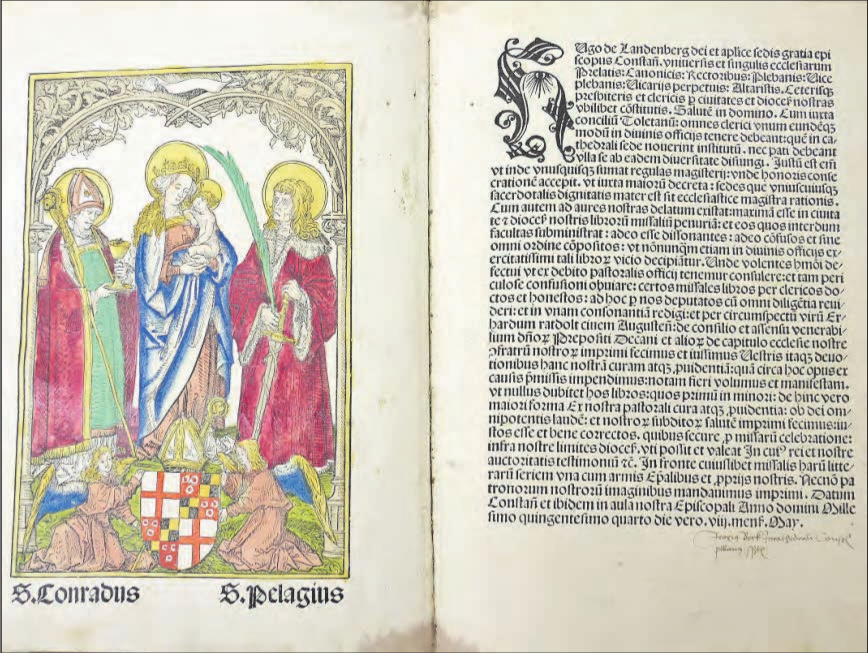 S.Conradus S.Pelagius
HUgo de Landenberg dei et aplice sedis gratia epi
scopus Constan̄. vniuersis et singulis ecclesiarum
Prelatis: Canonicis: Rectoribus: Plebanis: Uice
plebanis: Uicarijs perpetuis: Altaristis. Ceterisqꝫ
presbiteris et clericis ꝑ ciuitatē et dioces̄ nostras
vbilibet cōstitutis. Salutē in domino. Cum iuxta
conciliū Toletanū: omnes clerici vnum eundēqꝫ
modū in diuinis officijs tenere debeant: quē in ca⸗
thedrali sede nouerint institutū. nec pati debeant
vlla se ab eadem diuersitate disiungi. Justū est em̄
vt inde vnusquisqꝫ sumat regulas magisterij: vnde honoris conse
crationē accepit. vt iuxta maiorū decreta: sedes que vniuscuiusqꝫ
sacerdotalis dignitatis mater est sit ecclesiastice magistra rationis.
Cum autem ad aures nostras delatum existat: maximā esse in ciuita
te ⁊ dioces̄ nostris librorū missaliū penuriā: et eos quos interdum
facultas subministrat: adeo esse dissonantes: adeo cōfusos et sine
omni ordine cōpositos: vt nōnunqꝫ etiam in diuinis officijs ex⸗
ercitatissimi tali libroꝝ vicio decipiātur. Unde volentes hm̄oi de⸗
fectui vt ex debito pastoralis officij tenemur consulere: et tam peri
culose confusioni obuiare: certos missales libros per clericos do⸗
ctos et honestos: ad hoc ꝑ nos deputatos cū omni diligētia reui⸗
deri: et in vnam consonantiā redigi: et per circumspectū virū Er⸗
hardum ratdolt ciuem Augusten̄: de consilio et assensu venerabi⸗
lium dn̄oꝝ Prepositi Decani et alioꝝ de capitulo ecclesie nostre
ↄfratrū nostroꝝ imprimi fecimus et iussimus Uestris itaqꝫ deuo⸗
tionibus hanc nostrā curam atqꝫ ꝓuidentiā: quā circa hoc opus ex
causis p̄missis impendimus: notam fieri volumus et manifestam.
vt nullus dubitet hos libros: quos primū in minori: de hinc vero
maiori forma Ex nostra pastorali cura atqꝫ ꝓuidentia: ob dei om⸗
nipotentis laudē: et nostroꝝ subditoꝝ salutē imprimi fecimus: iu⸗
stos esse et bene correctos. quibus secure ꝓ missarū celebratione:
infra nostre limites dioces̄. vti possit et valeat In cuiꝰ rei et nostre
auctoritatis testimoniū ⁊c̄. Jn fronte cuiuslibet missalis harū litte⸗
rarū seriem vna cum armis Ep̄alibus et ꝓprijs nostris. Necnō pa
tronorum nostrorū imaginibus mandauimus imprimi. Datum
Constan̄ et ibidem in aula nostra Episcopali Anno domini Mille
simo quingentesimo quarto die vero. viij. mens̄. May.